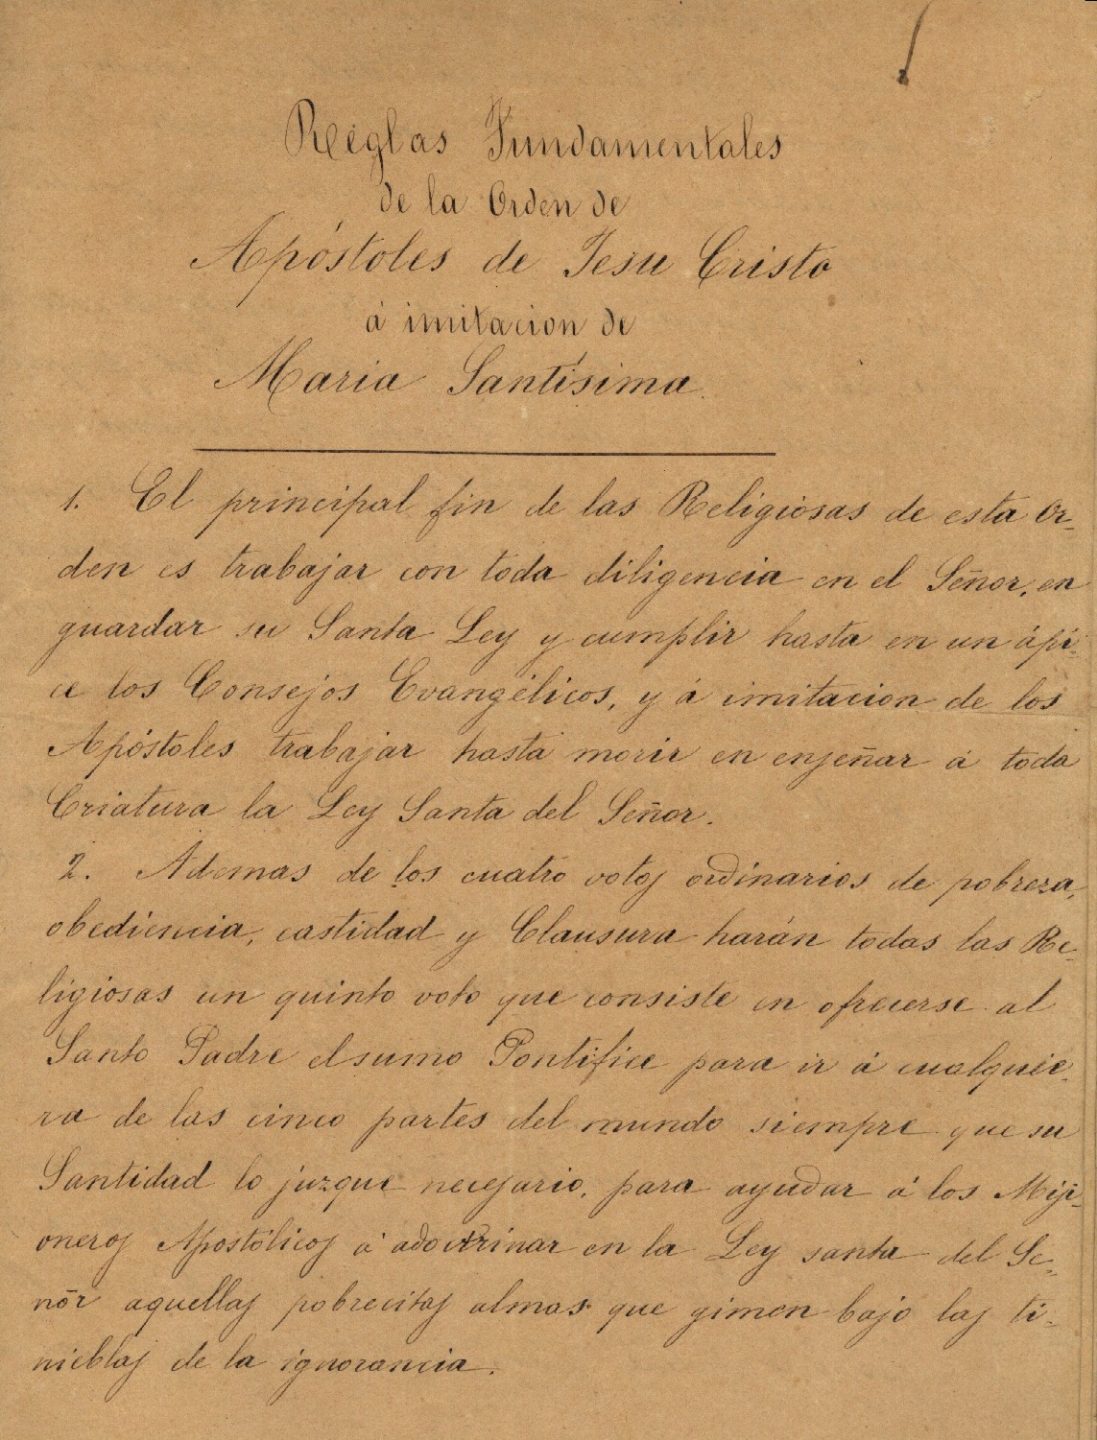 Reglas Fundamentales
de la Orden de
Apóstoles de Jesu Cristo
á imitacion de
Maria Santísima.
1. El principal fin de las Religiosas de esta Or-
den es trabajar con toda diligencia en el Señor, en
guardar su Santa Ley y cumplir hasta en un ápi-
ce los Consejos Evangélicos, y á imitacion de los
Apóstoles trabajar hasta morir en enseñar á toda
Criatura la Ley Santa del Señor.
2. Ademas de los cuatro votos ordinarios de pobreza,
obediencia, castidad y Clausura harán todas las Re-
ligiosas un quinto voto que consiste en ofrecerse al
Santo Padre el sumo Pontifice para ir á cualquie-
ra de las cinco partes del mundo siempre que su
Santidad lo juzque necesario, para ayudar á los Misi-
oneros Apostólicos á adoctrinar en la Ley santa del Se-
ñor aquellas pobrecitas almas que gimen bajo las ti-
nieblas de la ignorancia.